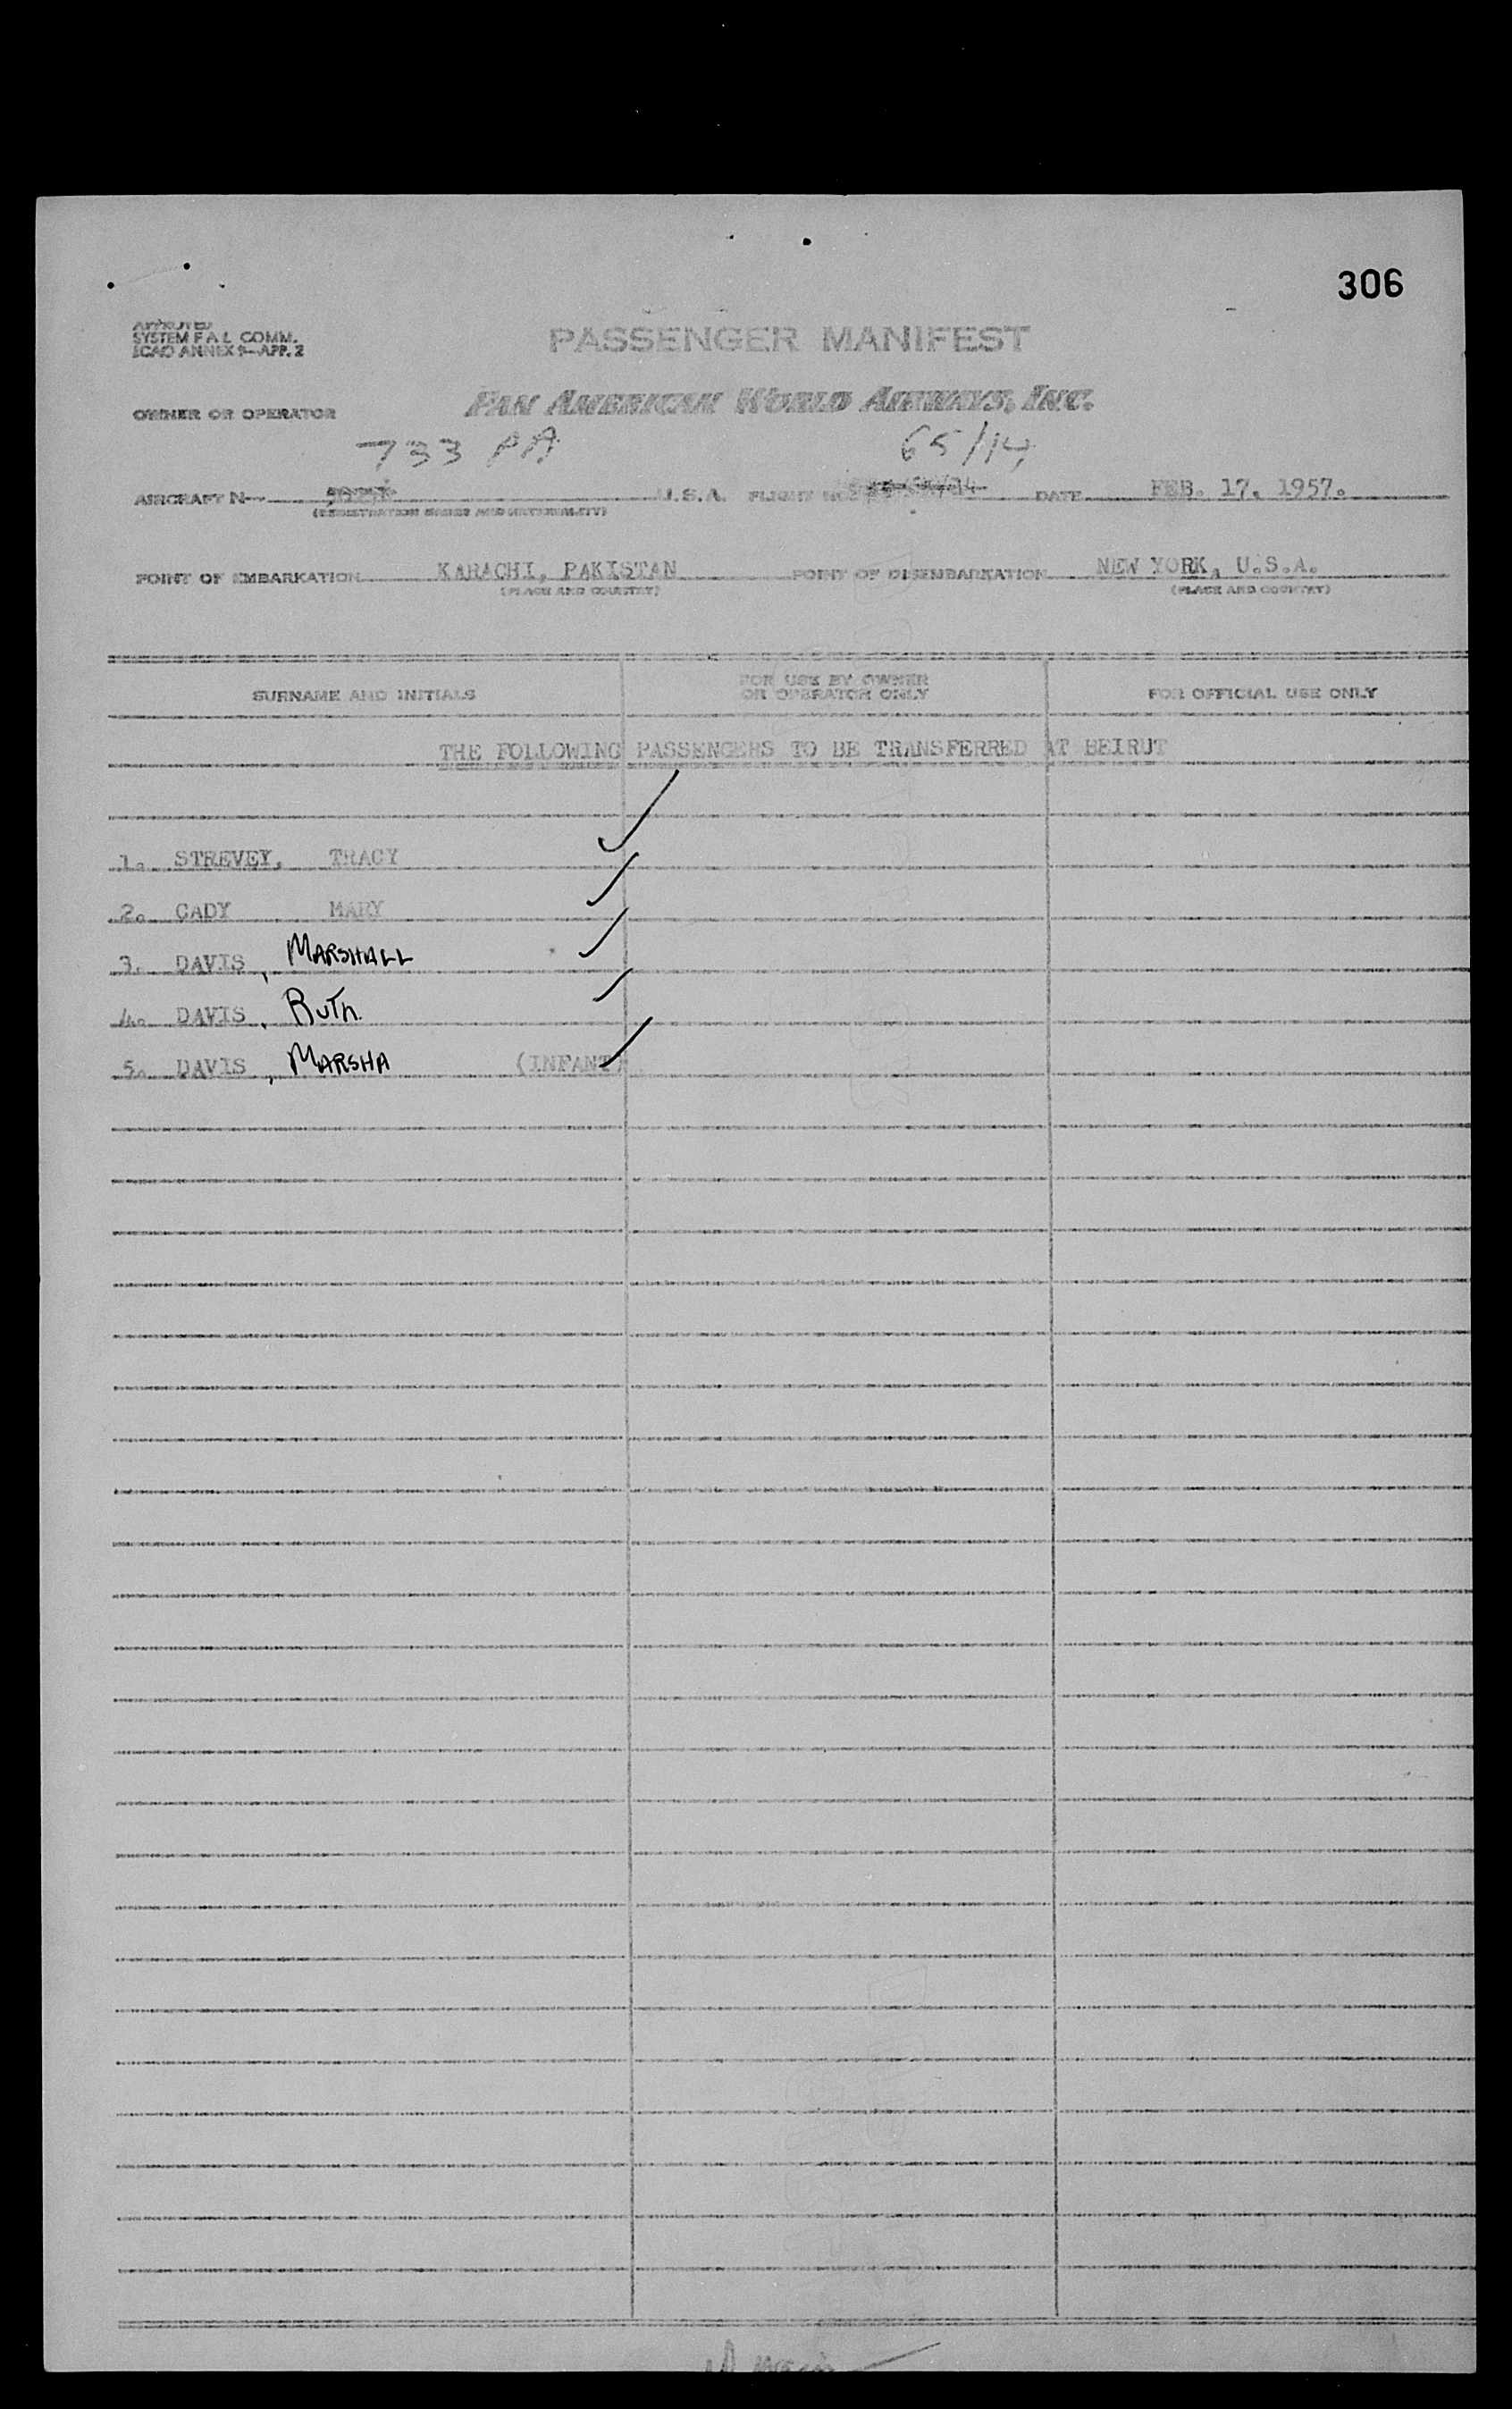 306
APPROVED
SYSTEM F A L COMM.
ICAO ANNEX 9—APP. 2
PASSENGER MANIFEST
OWNER OR OPERATOR PAN AMERICAN WORLD AIRWAYS, INC.
733 PA 65/14
AIRCRAFT N U.S.A. FLIGHT NO. DATE FEB. 17, 1957.
(REGISTRATION MARKS AND NATIONALITY)
POINT OF EMBARKATION KARACHI, PAKISTAN POINT OF DISEMBARKATION NEW YORK, U.S.A.
(PLACE AND COUNTRY) (PLACE AND COUNTRY)
SURNAME AND INITIALS FOR USE BY OWNER OR OPERATOR ONLY FOR OFFICIAL USE ONLY
THE FOLLOWING PASSENGERS TO BE TRANSFERRED AT BEIRUT
1. STREVEY, TRACY
2. CADY MARY
3. DAVIS, MARSHALL
4. DAVIS, RUTH.
5. DAVIS, MARSHA (INFANT)